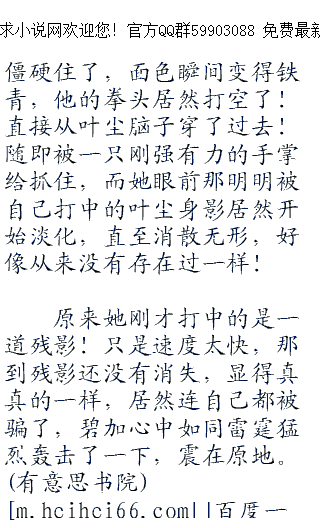 求小说网欢迎您！官方QQ群59903088 免费最新
僵硬住了，面色瞬间变得铁
青，他的拳头居然打空了！
直接从叶尘脑子穿了过去！
随即被一只刚强有力的手掌
给抓住，而她眼前那明明被
自己打中的叶尘身影居然开
始淡化，直至消散无形，好
像从来没有存在过一样！
原来她刚才打中的是一
道残影！只是速度太快，那
到残影还没有消失，显得真
真的一样，居然连自己都被
骗了，碧加心中如同雷霆猛
烈轰击了一下，震在原地。
(有意思书院)
[m.hcihci66.com||百度一